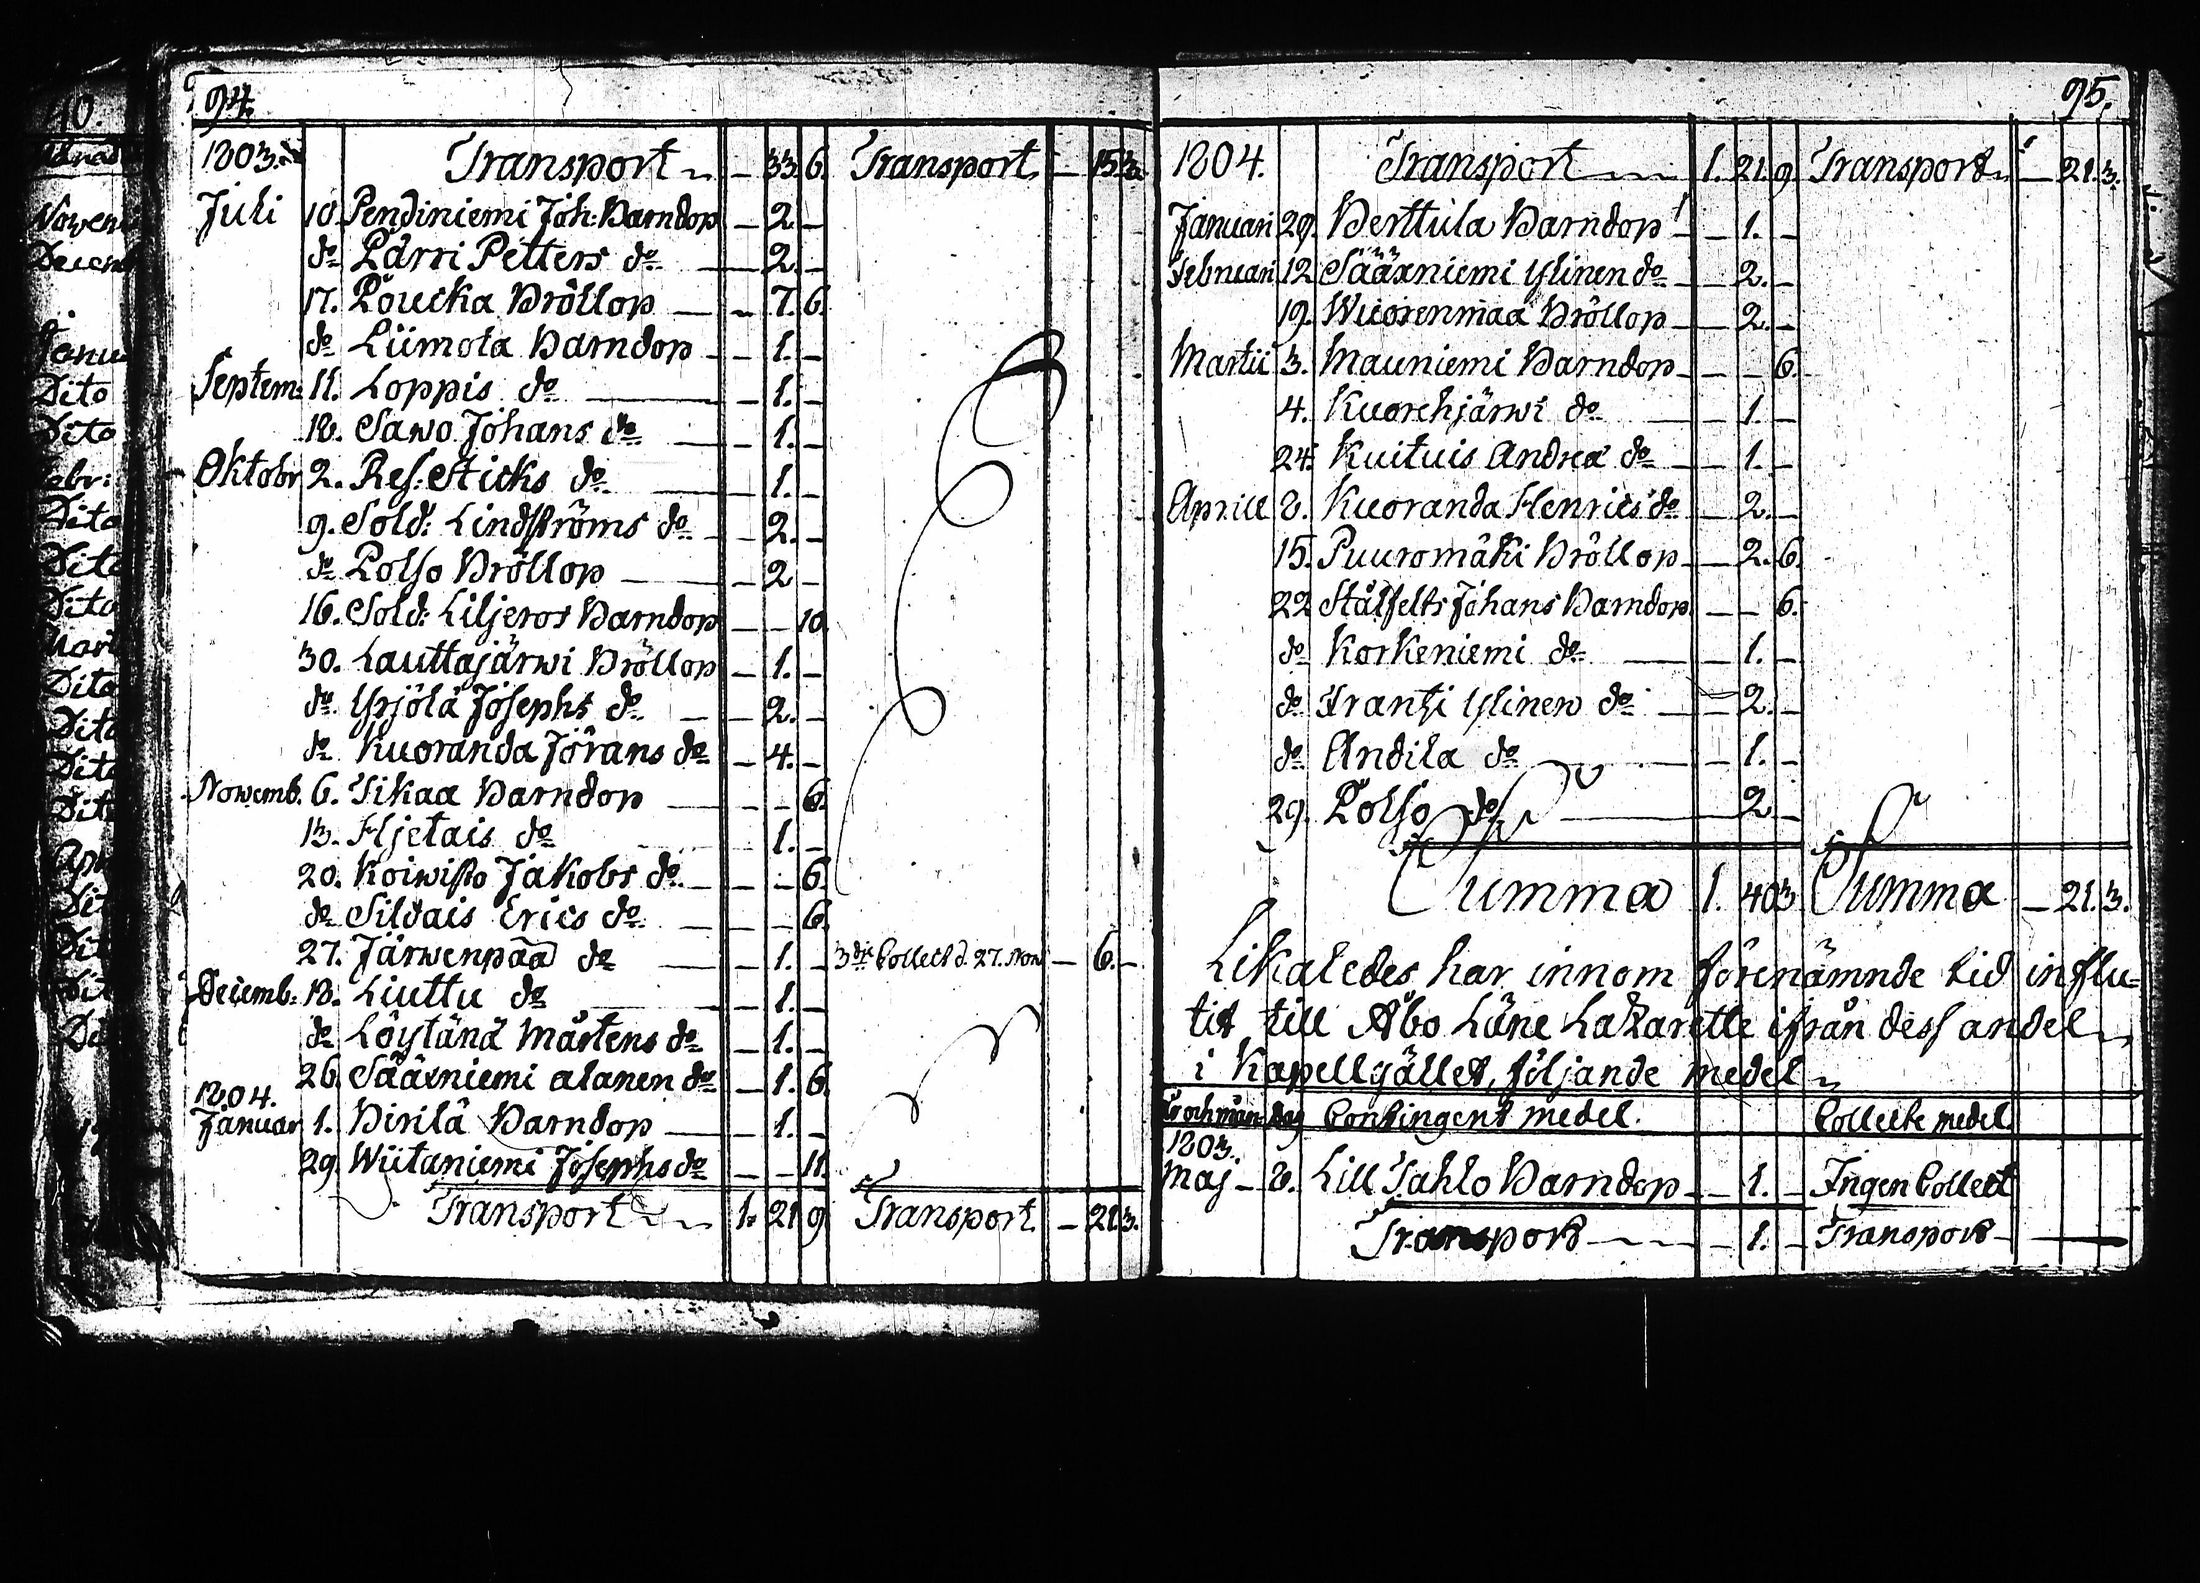 94.
1803. Transport — 33. 6. Transport — 15. 3.
Juli 10. Pendiniemi Joh: Barndop — 2. —
do Pärri Petters do — 2. —
17. Poucka Bröllop — 7. 6.
do Liimota Barndop — 1. —
Septem: 11. Loppis do — 1. —
18. Sawo Johans do — 1. —
Oktobr 2. Ref: Sticks do — 1. —
9. Sold: Lindströms do — 2. —
do Polso Bröllop — 2 —
16. Sold: Liljeros Barndop — — 10.
30. Lauttajärwi Bröllop — 1. —
do Yrjölä Josephs do — 2. —
do Kuoranda Jörans do — 4. —
Nowemb. 6. Tikaa Barndop — — 6.
13. Hjetais do — 1. —
20. Koiwisto Jakobs do — — 6.
do Sildais Erics do — — 6.
27. Järwenpää do — 1. — 3die Collect d. 27. Now — 6. —
Decemb: 18. Liuttu do — 1. —
do Löytänä Mårtens do — 1. —
26. Säärniemi alanen do — 1. 6.
1804.
Januar 1. Hirilä Barndop — 1. —
29. Wiitaniemi Josephs do — — 11.
Transport 1. 21 9. Transport — 21. 3.
95.
1804. Transport 1. 21. 9. Transport — 21. 3.
Januari 29. Berttula Barndop — 1. —
Februari 12 Säärniemi Ylinen do — 2. —
19. Wuorenmaa Bröllop — 2. —
Martii 3. Mauniemi Barndop — — 6.
4. Kuorehjärwi do — 1. —
24. Kuituis Andrea do — 1. —
Aprill 8. Kuoranda Henrics do — 2. —
15. Puuromäki Bröllop — 2. 6.
22 Stålfelts Johans Barndop — — 6.
do Korkeniemi do — 1. —
do Frantsi Ylinen do — 2. —
do Andila do — 1. —
29. Polso do — 2 —
Summa 1. 40 3 Summa — 21. 3.
Likaledes har innom förenämnde tid influ=
tit till Åbo Läne Lazarette ifrån dess andel
i Kapellgället, följande medel
År och mån: dag Contingent medel. Collecte medel.
1803.
Maj — 8. Lill Tahlo Barndop — 1. — Ingen Collect
Transport — 1. — Transport —